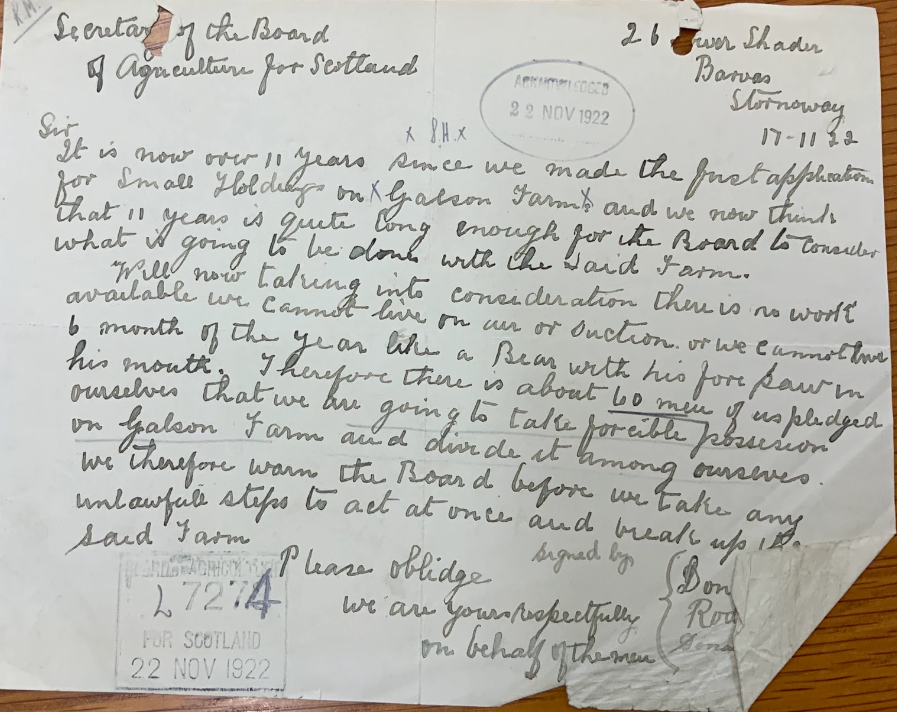 R.M.
Secretar of the Board
of Agriculture for Scotland
26 ower Shader
Barvas
Stornoway
17-11 22
ACKNOWLEDGED
22 NOV 1922
Sir
x S.H. x
It is now over 11 years since we made the first application
for Small Holdings on x Galson Farm x and we now think
that 11 years is quite long enough for the Board to consider
what is going to be done with the said Farm.
Will now taking into consideration there is no work
available we cannot live on air or suction. or we cannot live
6 month of the year like a Bear with his fore paw in
his mouth. Therefore there is about 60 men of us pledged
ourselves that we are going to take forcible possesion
on Galson Farm and divide it among ourselves.
We therefore warn the Board before we take any
unlawfull steps to act at once and break up it.
said Farm
Please oblidge
we are yours respectfully
on behalf of the men
signed by
Don
Rod
Dona
BOARD OF AGRICULTURE
L 7274
FOR SCOTLAND
22 NOV 1922